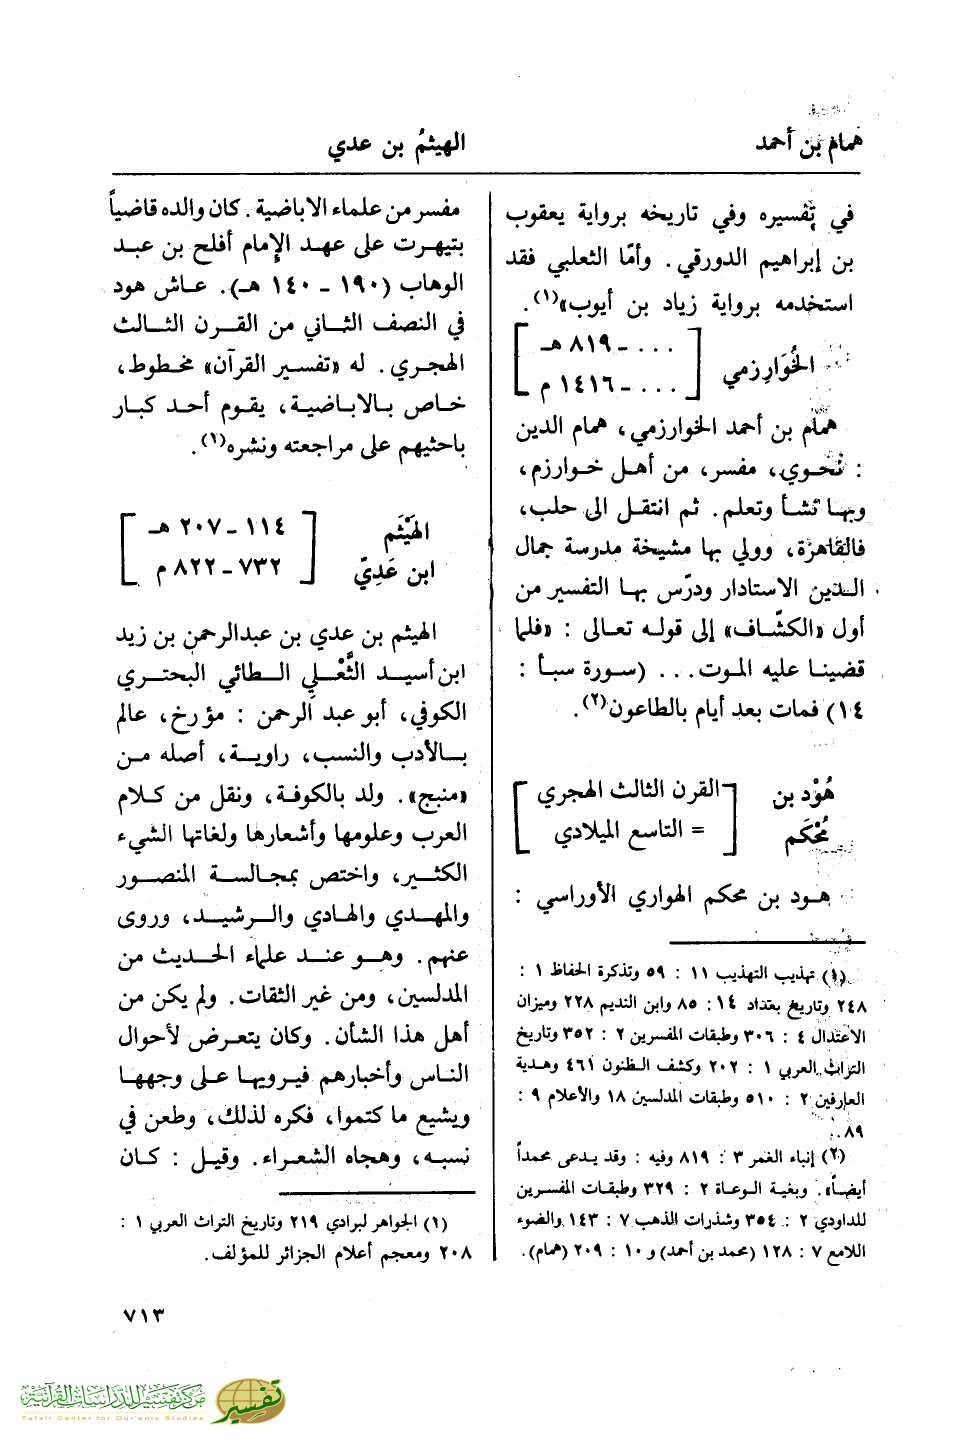 همام بن أحمد
الهيثمُ بن عدي
في تفسيره وفي تاريخه برواية يعقوب
بن إبراهيم الدورقي. وأمّا الثعلبي فقد
استخدمه برواية زياد بن أيوب»(١).
الخُوَارِزمي
[... ـ ٨١٩ هـ
... ـ ١٤١٦ م]
همام بن أحمد الخوارزمي، همام الدين
: نحوي، مفسر، من أهل خوارزم،
وبها نشأ وتعلم. ثم انتقل الى حلب،
فالقاهرة، وولي بها مشيخة مدرسة جمال
الدين الاستادار ودرّس بها التفسير من
أول «الكشّاف» إلى قوله تعالى : «فلما
قضينا عليه الموت... (سورة سبأ :
١٤) فمات بعد أيام بالطاعون(٢).
هُوْد بن
مُحْكَم
[القرن الثالث الهجري
= التاسع الميلادي]
هود بن محكم الهواري الأوراسي :
(١) تهذيب التهذيب ١١ : ٥٩ وتذكرة الحفاظ ١ :
٢٤٨ وتاريخ بغداد ١٤ : ٨٥ وابن النديم ٢٢٨ وميزان
الاعتدال ٤ : ٣٠٦ وطبقات المفسرين ٢ : ٣٥٢ وتاريخ
التراث العربي ١ : ٢٠٢ وكشف الظنون ٤٦١ وهدية
العارفين ٢ : ٥١٠ وطبقات المدلسين ١٨ والأعلام ٩ :
٨٩.
(٢) إنباء الغمر ٣ : ٨١٩ وفيه : وقد يدعى محمداً
أيضاً». وبغية الوعاة ٢ : ٣٢٩ وطبقات المفسرين
للداودي ٢ : ٣٥٤ وشذرات الذهب ٧ : ١٤٣ والضوء
اللامع ٧ : ١٢٨ (محمد بن أحمد) و ١٠ : ٢٠٩ (همام).
مفسر من علماء الاباضية. كان والده قاضياً
بتيهرت على عهد الإمام أفلح بن عبد
الوهاب (١٩٠ ـ ١٤٠ هـ). عاش هود
في النصف الثاني من القرن الثالث
الهجري. له «تفسير القرآن» مخطوط،
خاص بالاباضية، يقوم أحد كبار
باحثيهم على مراجعته ونشره(١).
الهَيْثَم
ابن عَدِيّ
[١١٤ ـ ٢٠٧ هـ
٧٣٢ ـ ٨٢٢ م]
الهيثم بن عدي بن عبدالرحمن بن زيد
ابن أسيد الثُّعْلِي الطائي البحتري
الكوفي، أبو عبد الرحمن : مؤرخ، عالم
بالأدب والنسب، راوية، أصله من
«منبج». ولد بالكوفة، ونقل من كلام
العرب وعلومها وأشعارها ولغاتها الشيء
الكثير، واختص بمجالسة المنصور
والمهدي والهادي والرشيد، وروى
عنهم. وهو عند علماء الحديث من
المدلسين، ومن غير الثقات. ولم يكن من
أهل هذا الشأن. وكان يتعرض لأحوال
الناس وأخبارهم فيرويها على وجهها
ويشيع ما كتموا، فكره لذلك، وطعن في
نسبه، وهجاه الشعراء. وقيل : كان
(١) الجواهر لبرادي ٢١٩ وتاريخ التراث العربي ١ :
٢٠٨ ومعجم أعلام الجزائر للمؤلف.
٧١٣
مركز تفسير للدراسات القرآنية
Tafsir Center for Qur'anic Studies
تفسير